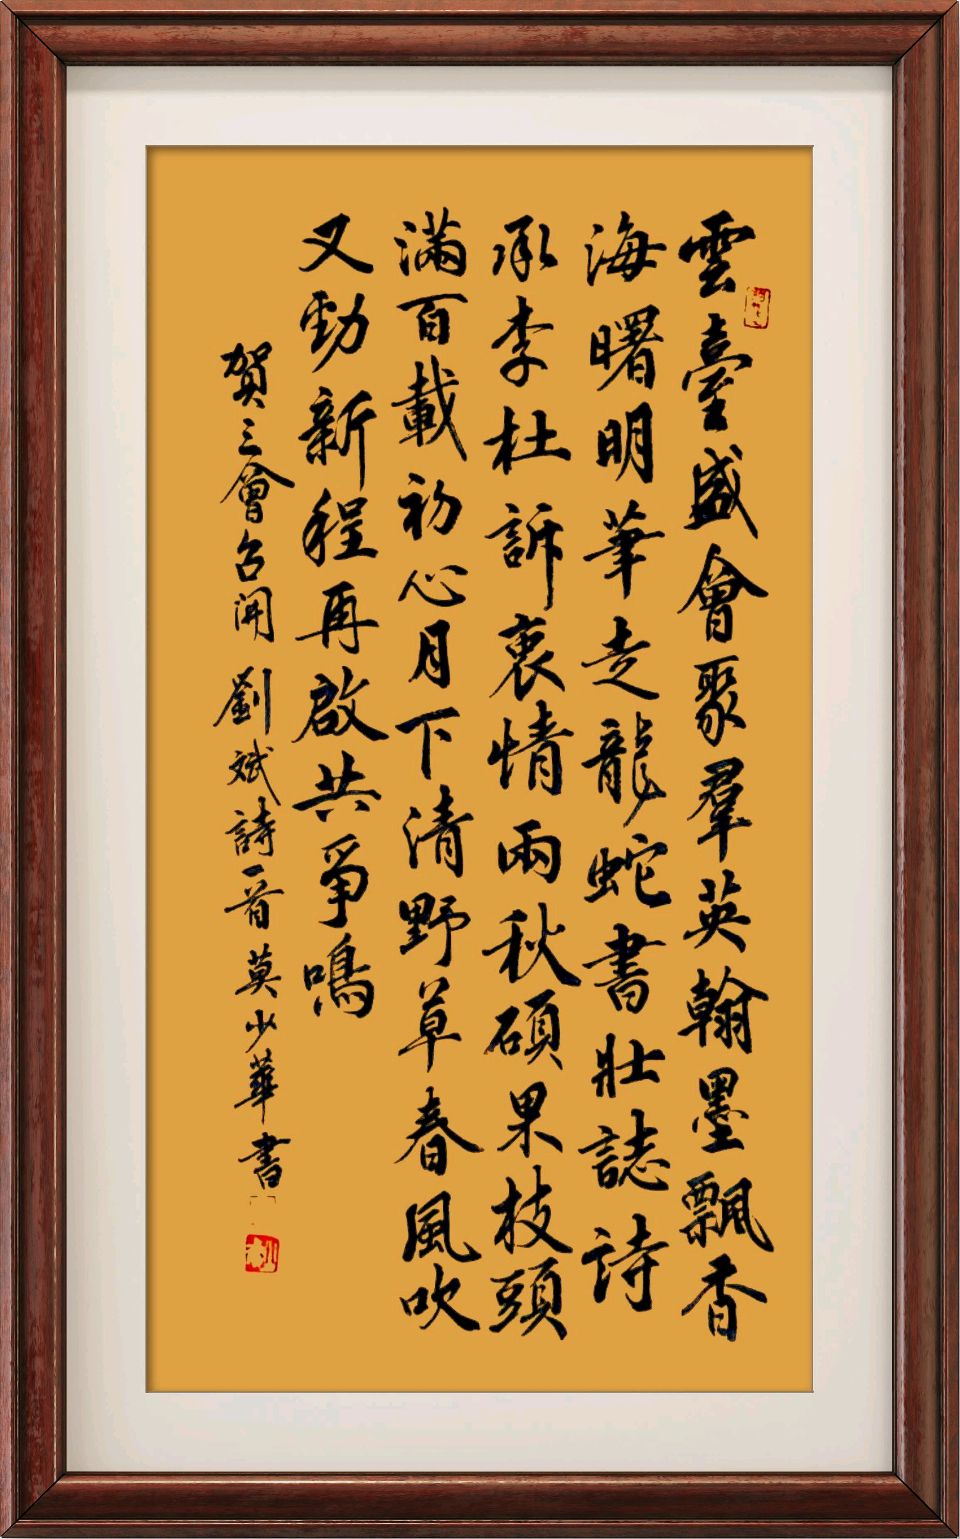 雲臺盛會聚羣英翰墨飄香
海曙明華走龍蛇書壯誌詩
承李杜訴衷情兩秋碩果枝頭
滿百載初心月下清野草春風吹
又勁新程再啟共爭鳴
賀三會召開劉斌詩一首莫少華書